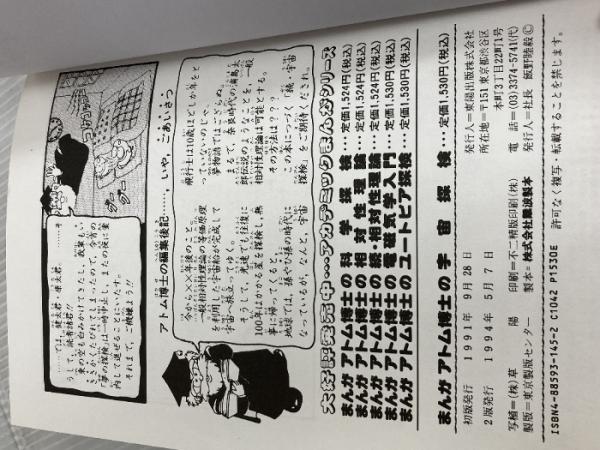 アトム博士の編集後記……、いや、ごあいさつ
今から××年後のこと。
一般相対性理論の等価原理
を利用した宇宙船が完成して
宇宙へ旅立ってゆく。
そうして、光速でも往復に
100年はかかる星を探検し、無
事に帰ってくると、
地球では、孫やひ孫の時代に
なっているが、なんと、宇宙
飛行士は10歳ほどしか年をと
っていないのじゃ。
夢物語ではござらぬ。
まるで、奈良時代の浦島太
郎伝説のようなことを、一般
相対性理論は可能とする。
その方法は???
この本につづく「続・宇宙
探検」を、ご期待くだされ。
……では、健太君、康太君。
そ
うして、読者諸君!!
東の空も白みかけてきたし、我輩もい
ささかくたびれてしまったので、今宵の
「夢の探検」は一時中止し、またの夜に案
内して進ぜることといたす。
それまで、ご機嫌よう!!
コケコッコー
グゥ
グゥー
大好評発売中…アカデミックまんがシリーズ
まんが アトム博士の科学探検…定価1,524円(税込)
まんが アトム博士の相対性理論…定価1,524円(税込)
まんが アトム博士の続・相対性理論…定価1,524円(税込)
まんが アトム博士の電磁気学入門…定価1,530円(税込)
まんが アトム博士のユートピア探検…定価1,530円(税込)
まんが アトム博士の宇宙探検…定価1,530円(税込)
初版発行 1991年9月28日
2版発行 1994年5月7日
発行人=東陽出版株式会社
所在地=〒151 東京都渋谷区
本町3丁目22町1号
電話=(03)3374-5741(代)
発行人=社長 飯野睦毅©
写植=(株)草陽
印刷=不二精版印刷(株)
製版=東京製版センター
製本=株式会社難波製本
ISBN4-88593-145-2 C1042 P1530E
許可なく複写・転載することを禁じます。